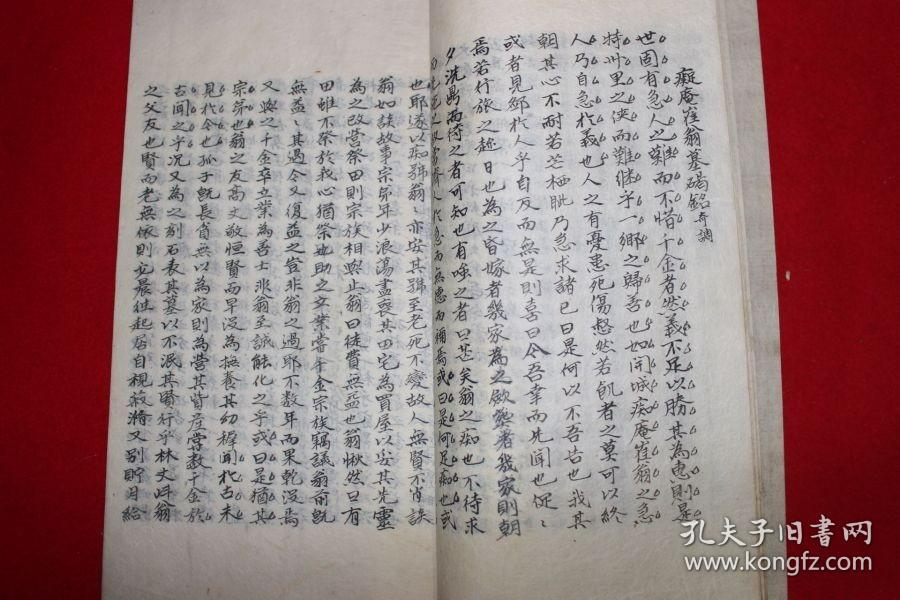 癡庵崔翁墓碣銘 奇調
世固有急人之難而不惜千金者然義不足以勝其為惠則是
特州里之俠而難繼乎一鄉之歸善也如開城痴庵崔翁之急
人乃自急於義也人之有憂患死傷愁然若飢者之莫可以終
朝其心不耐若芒栖眦乃急求諸己曰是何以不吾告也我其
或者見鄙於人乎自反而無是則喜曰今吾幸而先聞也促々
焉若行旅之趁日也為之昏嫁者幾家為之斂葬者幾家則朝
夕洗鼎而待之者可知也有嗤之者曰甚矣翁之痴也不待求
人於急而無惠而禰焉或曰是何足痴也或
也耶遂以痴號翁々亦安其號至老死不變故人無賢不肖誄
翁如談故事宗弟年少浪蕩盡喪其田宅為買屋以安其先靈
為之改營祭田則宗族相與止翁曰徒費無益也翁愀然曰有
田雖不祭於我心猶祭也助之立業常千金宗族竊議翁前既
無益々其過今又復益之豈非翁之過耶不數年而果乾沒焉
又與之千金卒立業為善士非翁至誠能化之乎或曰是猶其
宗弟也翁之友高丈敬恒賢而早沒為撫養其幼稚聞於古未
見於今也孤子既長貧無以為家則為營其貲產常數千金於
古聞之乎況又為之刻石表其墓以不泯其賢行乎林丈 翁
之父友也賢而老無依則 晨往起居自視 滫又別貯月給
孔夫子旧书网
kongfz.com